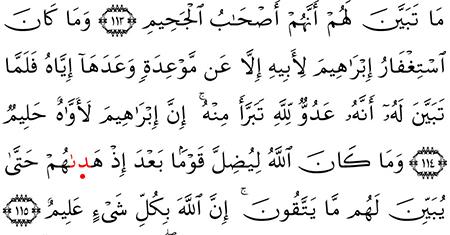 مَا تَبَيَّنَ لَهُمْ أَنَّهُمْ أَصْحَٰبُ ٱلْجَحِيمِ ١١٣ وَمَا كَانَ
ٱسْتِغْفَارُ إِبْرَٰهِيمَ لِأَبِيهِ إِلَّا عَن مَّوْعِدَةٍ وَعَدَهَآ إِيَّاهُ فَلَمَّا
تَبَيَّنَ لَهُۥٓ أَنَّهُۥ عَدُوٌّ لِّلَّهِ تَبَرَّأَ مِنْهُ ۚ إِنَّ إِبْرَٰهِيمَ لَأَوَّٰهٌ حَلِيمٌ
١١٤ وَمَا كَانَ ٱللَّهُ لِيُضِلَّ قَوْمًۢا بَعْدَ إِذْ هَدَىٰهُمْ حَتَّىٰ
يُبَيِّنَ لَهُم مَّا يَتَّقُونَ ۚ إِنَّ ٱللَّهَ بِكُلِّ شَىْءٍ عَلِيمٌ ١١٥